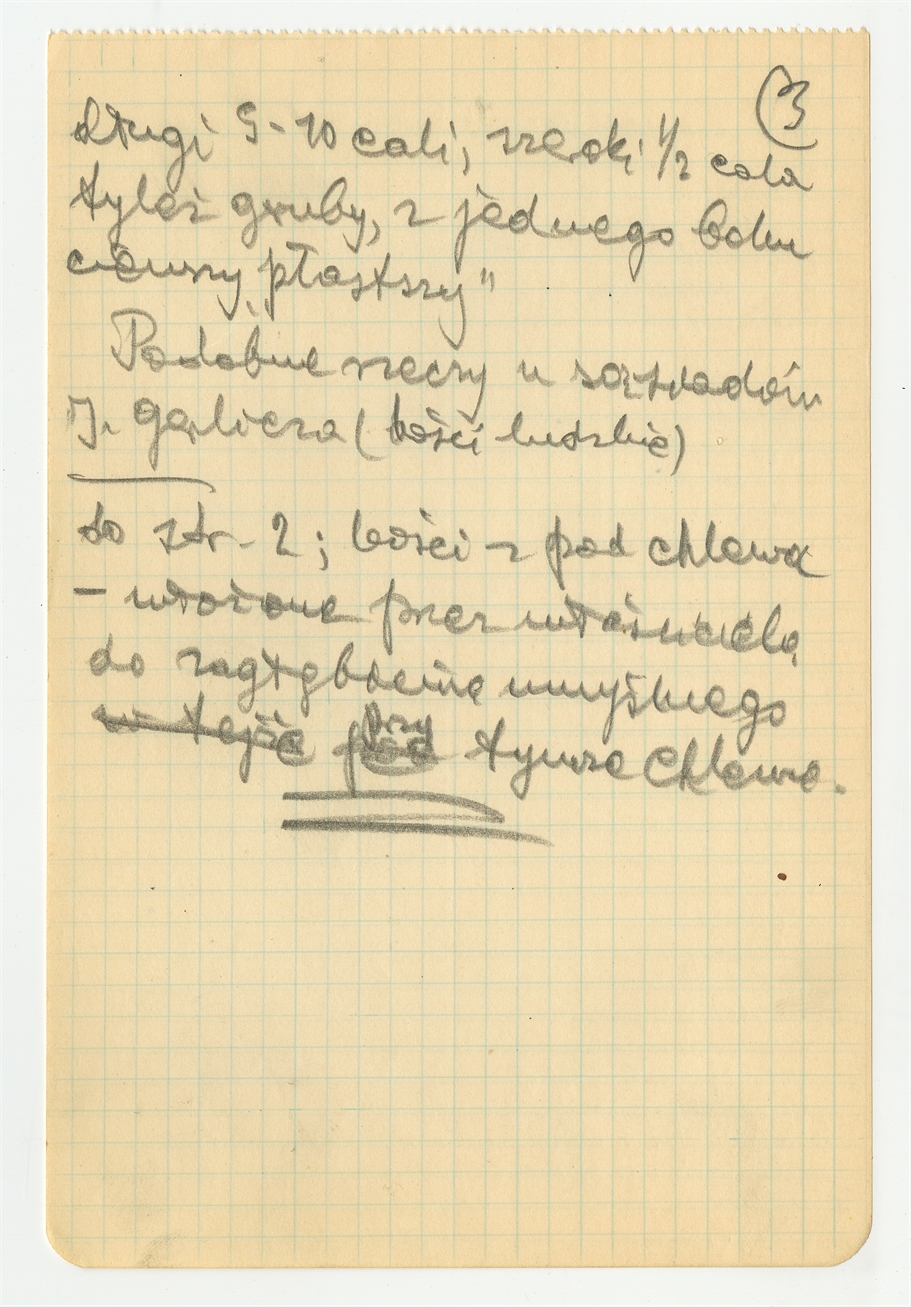 3
długi 9-10 cali, szeroki 1/2 cala
tyleż gruby, z jednego boku
ciemny, płastszy"
Podobne rzeczy u sąsiadów
J. garlicza (kości ludzkie)
do str. 2; kości z pod chlewa
– włożone przez właściciela
do zagłębienia umyślnego
w tejże przy tymże chlewie.